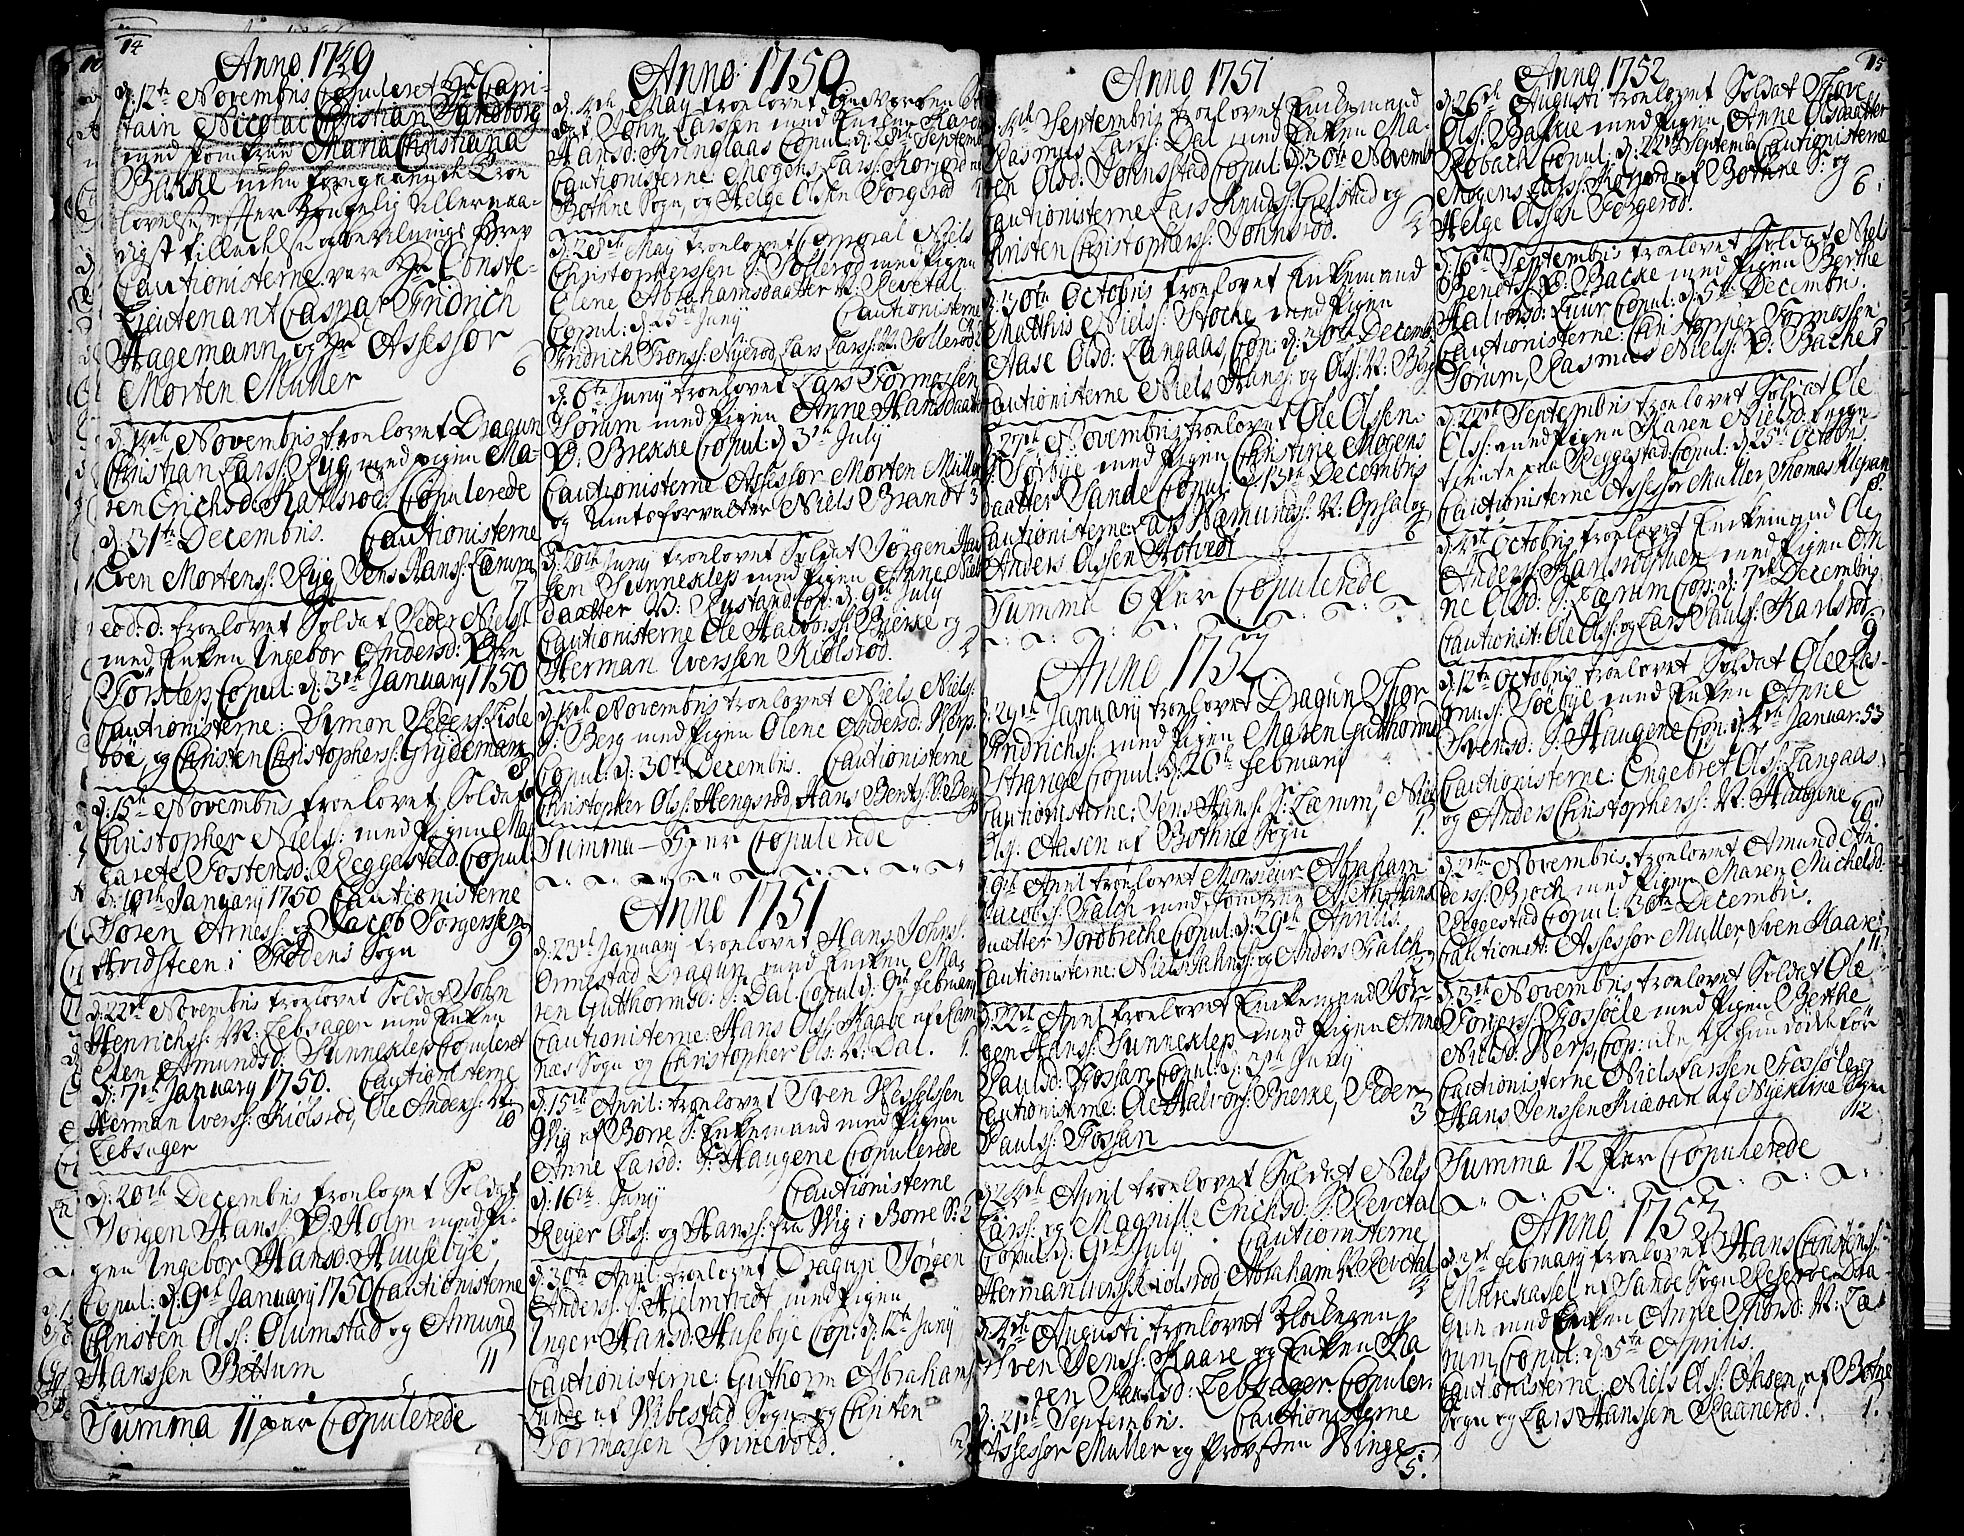 14
Anno 1749
d: 12te Novembris Copuleret Hr. Capi-
tain Nicolai Christian Sundborg
med Jomfrue Maria Christiana
Bakke uden foregaaende Troe
lovelse efter Kongelig Allernaa-
digst tilladelse og bevilnings Brev
Cautionisterne vare Hr. Obriste-
Lieutenant Caspar Fridrich
Hagemann og Hr. Assessor
Morten Muller 6
d: 14de Novembris troelovet Dragun
Christian Larss: Ryg med pigen Ma-
ren Erichsd: Kattesrød: Copulerede
d: 31te Decembris. Cautionisterne
Even Mortenss: Ryg Jens Hanss: Lærum
7
eod: d: troelovet Soldat Peder Nielss:
med Enken Ingebor Andersd:
Copul: d: 3de January 1750
Cautionisterne: Simon Pederss: Lisle
böe, og Christen Christophers: Grydeman
8
d: 15de Novembris troelovet Soldat
Christopher Nielss: med Pigen Ma
garete Tostensd: Reggestad Copul:
d: 19de January 1750 Cautionisterne
Søren Arness: og Jacob Torgerssen
Hvidsteen i Skodens Sogn 9
d: 22de Novembris troelovet Soldat John
Henrichs: N: Lebsager med Enken
Amundsd: Sunneklep Copuleret
d: 7de January 1750. Cautionisterne
Herman Iverss: Kiölsrød, Ole Anderss: N:
Lebsager 10
d: 20de Decembris troelovet Soldat
Jörgen Hanss: Ø: Holm med Pi-
gen Ingebor Hansd: Huusebye
Copul: d: 9de January 1750 Cautionisterne
Christen Olss: Olumstad og Amund
Hanssen Bettum 11
Summa 11 par Copulerede
Anno 1750
d: 4de May troelovet
John Larssen med Enken Karen
Hansd: Kinnglaas Copul: d: 28de Septemb
Cautionisterne Mogens Larss: Rörjord
Bothne Sogn, og Helge Olsen Torgerød 1
d: 28de May troelovet Corporal Niels
Christopherssen S: Sollerød med Pigen
Elene Abrahamsdaatter N: Revetal
Copul: d: 25de Juny Cautionisterne
Fridrich Fronss: Nyerød Lars Larss: N: Sollerød 2
d: 6te Juny troelovet Lars Tormossen
Sörum med Pigen Anne Hansdaatter
Ø: Brekke Copul: d: 3de July
Cautionisterne Assessor Morten Muller
og Amtsforvalter Niels Brandt 3
d: 20de Juny troelovet Soldat Jörgen Han
sen Sunneklep med Pigen Anne Niels
daatter N: Rustand Cop: d: 9de July
Cautionisterne Ole Halvorss: Bierke og
Herman Iverssen Kiölsrød. 4
d: Novembris troelovet Niels Nielss:
S: Berg med Pigen Olene Andersd: Werp
Copul: d: 30te Decembris. Cautionisterne
Christopher Olss: Hengsrød, Hans Bentss: N: Berg
5
Summa — 5 par Copulerede
Anno 1751
d: 23de January troelovet Hans Johnss:
Ormestad Dragun med Enken Ma-
ren Guthormsd: S: Dal Copul: d: 9de February
Cautionisterne: Hans Olss: Haabe af Ram
næs Sogn og Christopher Olss: N: Dal. 1.
d: 15de April: troelovet Sven Kieldssen
Wig af Borre S: Enkemand med Pigen
Anne Larsd: S: Haugene Copulerede
d: 16de Juny Cautionisterne
Reyer Olss: og Hanss: fra Wig i Borre S: 2
d: 30te April: troelovet Dragun Jörgen
Anderss: S: Hielmtvedt med Pigen
Inger Hansd: Husebye Cop: d: 12te Juny
Cautionisterne: Guthorm Abrahams
Lunde af Wibestad Sogn og Christen
Tormossen Svinevold. 3
Anno 1751
d: 4de Septembris troelovet Enkemand
Rasmus Larss: Dal med Enken Ma-
ren Olsd: Johnsstad Copul: d: 30te Novemb:
Cautionisterne Lars Knuds: Gielstad og
Christen Christopherss: Johnsrød. 4
d: 30te Octobris troelovet Enkemand
Matthis Nielss: Stocke med Pigen
Aase Olsd: Langaas Cop: d: 30te Decemb:
Cautionisterne Niels Hanss: og Olss: N: Berg
d: 27de Novembris troelovet Ole Olssen
Sörbye med Pigen Christine Mogens
daatter Sande Copul: d: 13de Decembris
Cautionisterne Lars Namundss: N: Opsal og
Anders Olssen Hotvedt 6
Summa 6 Par Copulerede
Anno 1752
d: 29de January troelovet Dragun Thor
Hindrichss: med Pigen Maren Guthorms
Strange Copul: d: 26de february
Cautionisterne: Jens Hanss: S: Lærum, Niels
Olss: Aasen af Bothne Sogn 1.
d: 9de April troelovet Monsieur Abraham
Jacobss: Falch med Jomfrue Hans
daatter Nordbreche Copul: d: 29de Aprilis.
Cautionisterne: Niels Jahnss: og Anders Falch
2
d: 22de April troelovet Enkemand Jör-
gen Hanss: Sunneklep med Pigen Anne
Paulsd: Fossan Copul: d: Juny
Cautionisterne: Ole Halvorss: Bierke, Peder
Paulss: Fossan 3
d: 24de April troelovet Soldat Niels
Larss: og Magnille Erichsd: S: Revetal
Copul: d: 9de July Cautionisterne
Herman Iverss: Kiolsrød, Abraham N: Revetal
4
d: 4de Augusti troelovet Klockeren
Sven Jenss: Kaare og Enken Ka
ren Paulsd: Lebsager: Copuler:
d: 21de Septembris. Cautionisterne
Assessor Muller og Provsten Winge
5.
15
Anno 1752
d: 26de Augusti troelovet Soldat Thore
Olss: Bakke med Pigen Anne Olsdaatter
Robach Copul: d: 22de Septemb: Cautionisterne
Mogens Larss: Rörjord af Bothne S: og
Helge Olssen Torgerød. 6.
d: 16de Septembris troelovet Soldat Niels
Bendtss: Ø: Backe med Pigen Berthe
Halvorsd: Fuur Copul: d: 5te Decembris.
Cautionisterne: Christopher Tormossen
Sörum, Rasmus Nielss: Ø: Backe 7
d: 22de Septembris troelovet Soldat Ole
Elss: med Pigen Karen Nielsd: begge
tiente paa Reggestad Copul: d: 25de Octobr:
Cautionisterne Assessor Muller, Thomas Alexan
8.
d: 4de Octobris troelovet Enkemand Ole
Anderss: Karlsvognen med Pigen An
ne Olsd: S: Lærum Cop: d: 7de Decembris
Cautionist: Ole Olss: og Lars Paulss: Karlsrød
9
d: 12te Octobris troelovet Soldat Ole Ras-
muss: Söebye med Enken Anne
Svensd: S: Haugene Cop: d: 4de Januar: 53
Cautionisterne: Engebret Olss: Langaas
og Anders Christophers: N: Haugene
10
d: Novembris troelovet Amund An-
derss: Brock med Pigen Maren Michelsd:
Reggestad Copul: 30te Decembris.
Cautionist: Assessor Muller, Sven Kaare
11
d: 3de Novembris troelovet Soldat Ole
Torgerss: Fossöle med Pigen Berthe
Nielsd: Werp, Cop:
Cautionisterne Niels Larssen Fossöle og
Hans Jenssen Kiæran af Nyekirke Sogn
12
Summa 12 Par Copulerede
Anno 1753
d: 3de february troelovet Hans Christenss:
Mörekasel af Sande Sogn Reserve Dra
gun med Enken Anne Thord: N: Læ-
rum, Copul: d: 5te Aprilis.
Cautionisterne: Niels Olss: Aasen af Botne
Sogn og Lars Hanssen Raanerød. 1.